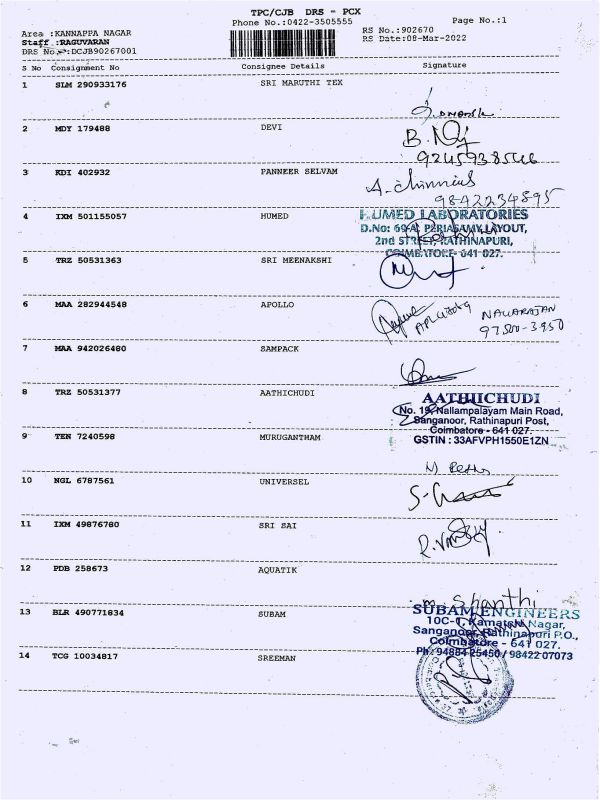 TPC/CJB DRS - PCX
Phone No.:0422-3505555
Page No.:1
Area :KANNAPPA NAGAR
Staff :RAGUVARAN
DRS No.:DCJB90267001
RS No.:902670
RS Date:08-Mar-2022
S No Consignment No Consignee Details Signature
1 SLM 290933176 SRI MARUTHI TEX
2 MDY 179488 DEVI
9245938546
3 KDI 402932 PANNEER SELVAM
9842234895
4 IXM 501155057 HUMED
HUMED LABORATORIES
D.No: 69-A, PERIASAMY LAYOUT,
2nd STREET, RATHINAPURI,
COIMBATORE- 641 027.
5 TRZ 50531363 SRI MEENAKSHI
6 MAA 282944548 APOLLO
NAGARAJAN
7 MAA 942026480 SAMPACK
8 TRZ 50531377 AATHICHUDI
AATHIICHUDI
No. 19, Nallampalayam Main Road,
Sanganoor, Rathinapuri Post,
Coimbatore - 641 027.
GSTIN : 33AFVPH1550E1ZN
9 TEN 7240598 MURUGANTHAM
10 NGL 6787561 UNIVERSEL
11 IXM 49876780 SRI SAI
12 PDB 258673 AQUATIK
m. Shanthi
13 BLR 490771834 SUBAM
SUBAM ENGINEERS
10C-1, Kamaraj Nagar,
Sanganoor, Rathinapuri P.O.,
Coimbatore - 641 027.
Ph: 94884 25450 / 98422 07073
14 TCG 10034817 SREEMAN